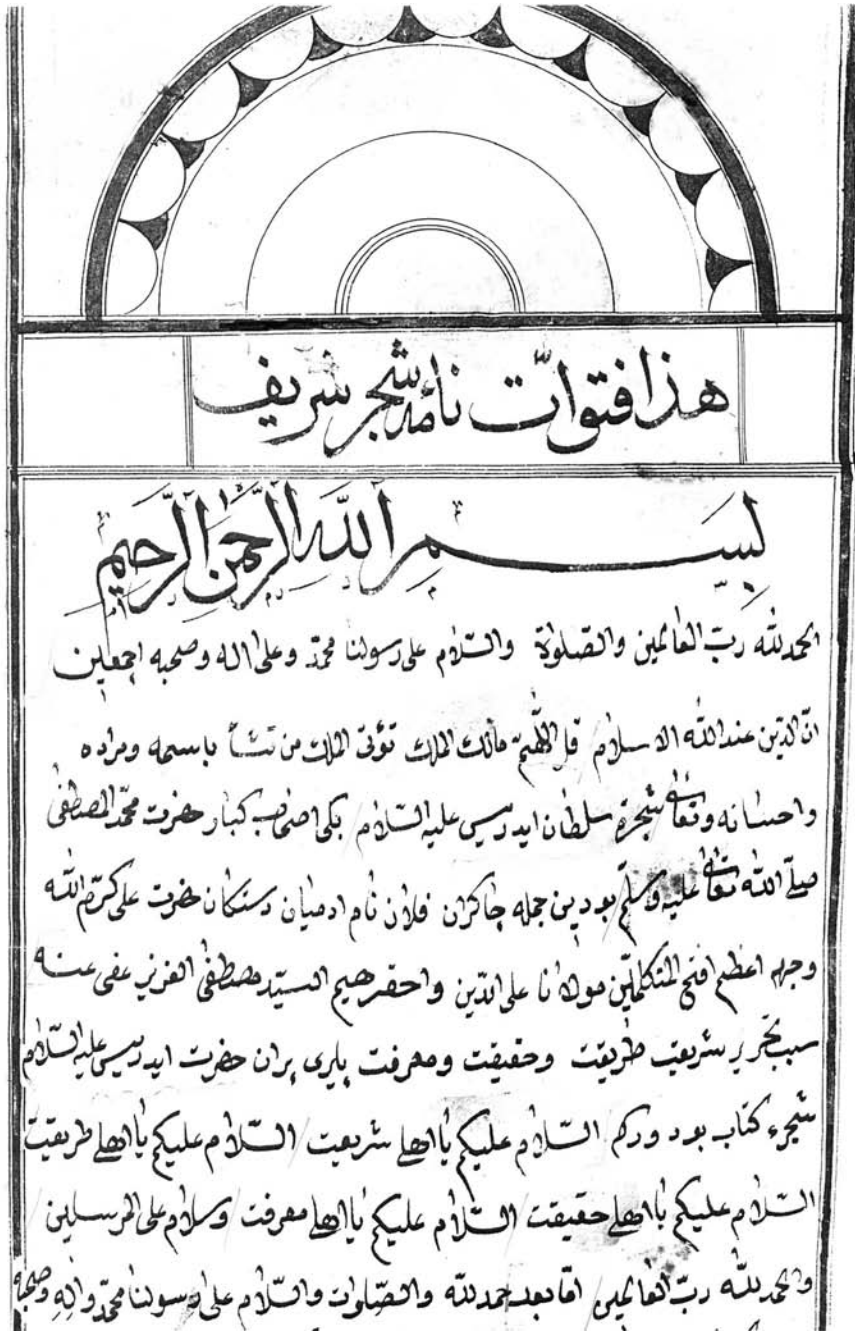 هذا فتوّات نامه شجر شريف
بسم الله الرحمن الرحيم
الحمد لله ربّ العالمين والصّلوة والسّلام على رسولنا محمّد وعلى اله وصحبه اجمعين
انّ الدّين عند الله الاسلام قل اللّهمّ مالك الملك تؤتى الملك من تشأ باسمه ومراده
واحسانه وتعالى شجرة سلطان ايدريس عليه السّلام بكى اصحاب كبار حضرت محمّد المصطفى
صلّى الله تعالى عليه وسلّم بودين جمله چاكران فلان نام ادميان دستكان حضرت على كرّم الله
وجهه اعظم افتح المتكلمّين مولانا على الدّين واحقر هيم السيّد مصطفى العزيز عفى عنه
سبب تحرير شريعت طريقت وحقيقت ومعرفت پيرى پران حضرت ايدريس عليه السّلام
شجرء كتاب بود وركم السّلام عليكم يا اهلى شريعت السّلام عليكم يا اهلى طريقيت
السّلام عليكم يا اهلى حقيقت السّلام عليكم يا اهلى معرفت وسلام على المرسلين
والحمد لله ربّ العالمين امّا بعد حمد لله والصّلوات والسّلام على رسولنا محمّد واله وصحبه